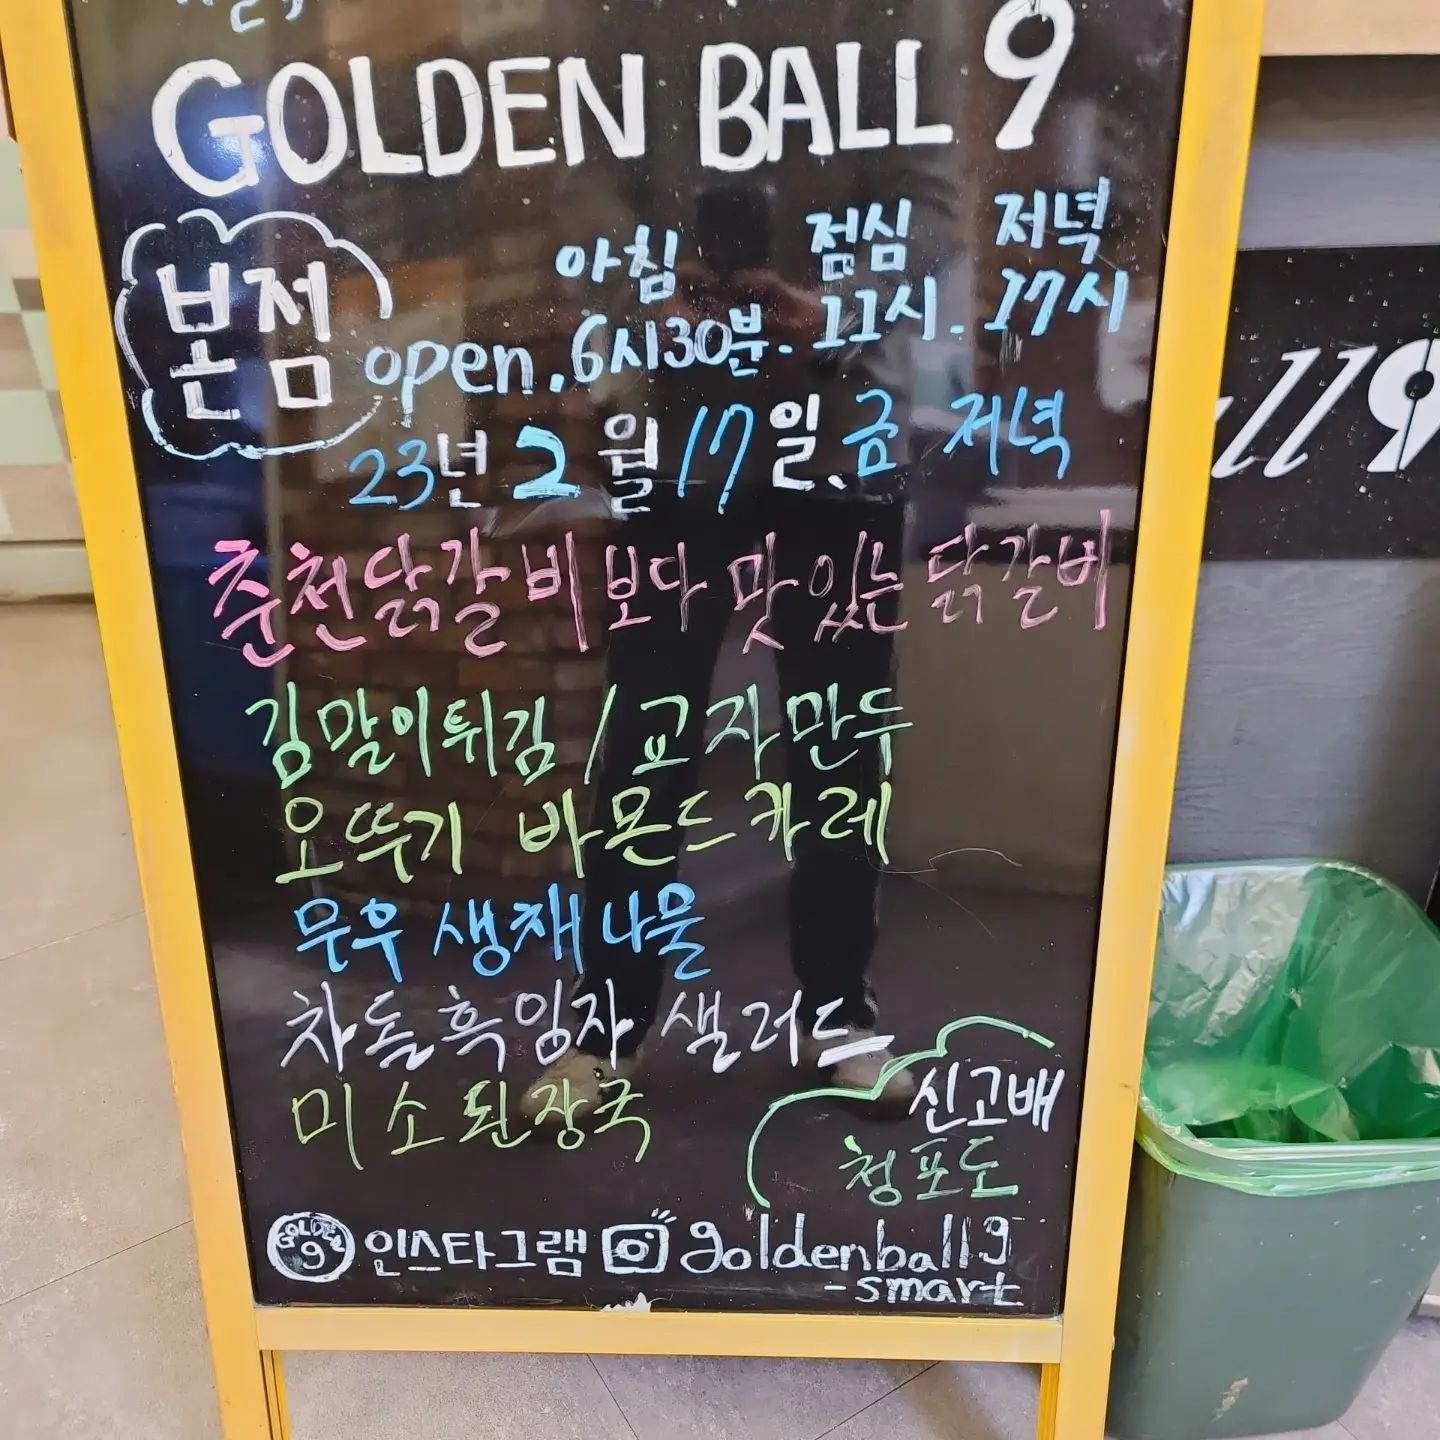 GOLDEN BALL 9
본점
아침 점심 저녁
open. 6시30분. 11시. 17시
23년 2월 17일. 금 저녁
춘천닭갈비보다 맛있는닭갈비
김말이튀김 / 교자만두
오뚜기 바몬드카레
무우 생채나물
차돌흑임자 샐러드
미소된장국
신고배
청포도
GOLDEN 9 인스타그램 goldenball9
-smart
ll9